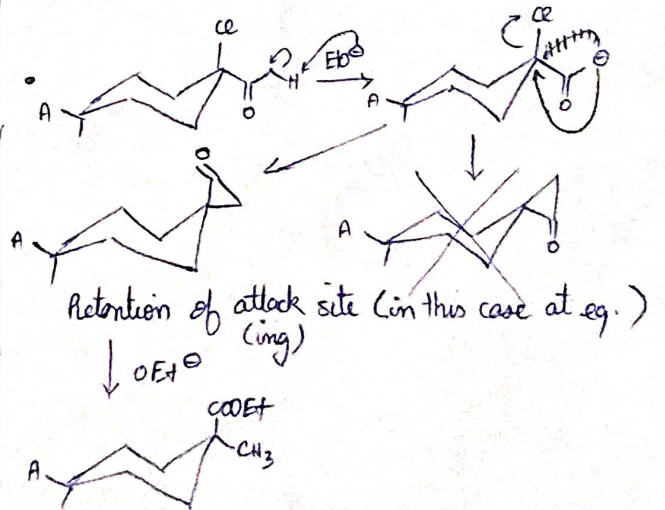 Cl
Cl
H
Et0⊖
A
O
⊖
A
O
O
A
A
O
Retention of attack site (in this case at eq.)
(ing)
OEt⊖
COOEt
CH3
A